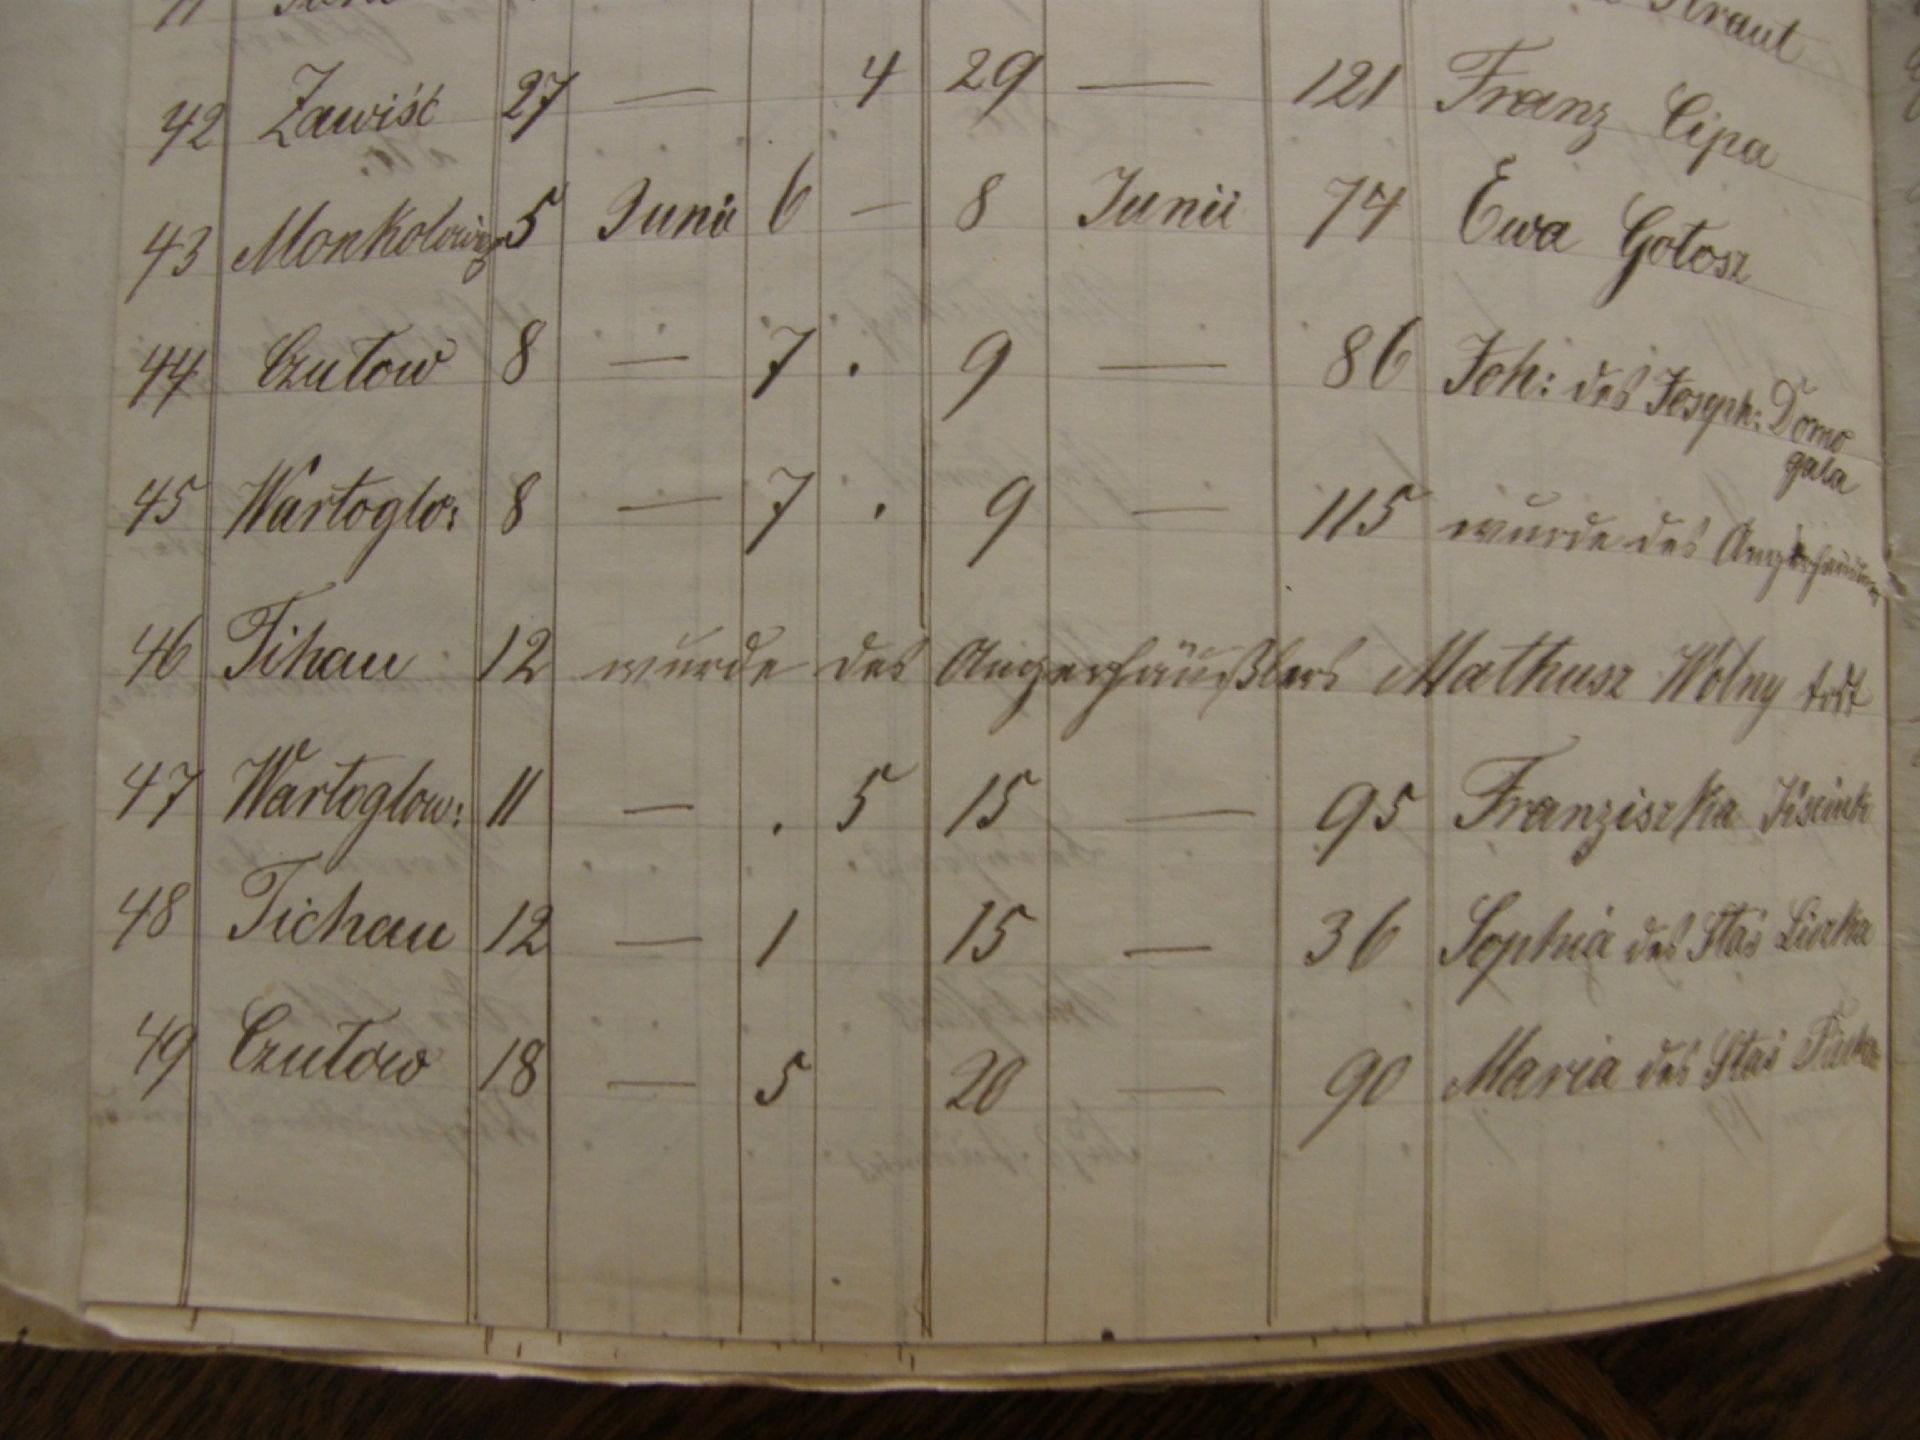 Kraut
42 Zawiść 27 — 4 29 — 121 Franz Cipa
43 5 Junii 6 — 8 Junii 74 Ewa Gołosz
44 Czułow 8 — 7 . 9 — 86 Joh: des Joseph: Domo
gala
45 Wartoglo: 8 — 7 . 9 — 115 wurde des Angerhäuslers
46 Tihau 12 wurde des Angerhäußlers Mathusz Wolny todt
47 Wartoglow: 11 — . 5 15 — 95 Franziszka
48 Tichau 12 — 1 15 — 36 Sophia des Stas
49 Czułow 18 — 5 20 — 90 Maria des Stas